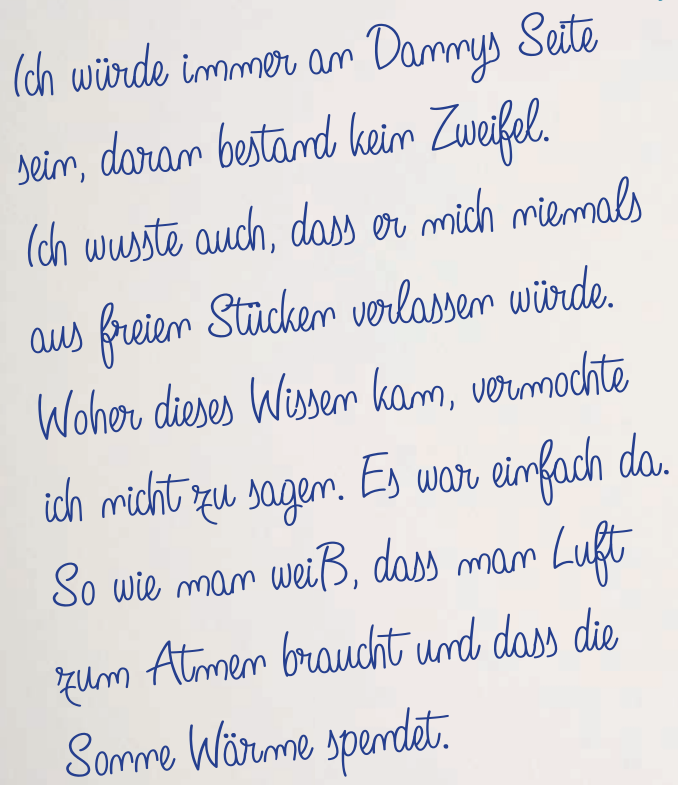 Ich würde immer an Dannys Seite
sein, daran bestand kein Zweifel.
Ich wusste auch, dass er mich niemals
aus freien Stücken verlassen würde.
Woher dieses Wissen kam, vermochte
ich nicht zu sagen. Es war einfach da.
So wie man weiß, dass man Luft
zum Atmen braucht und dass die
Sonne Wärme spendet.